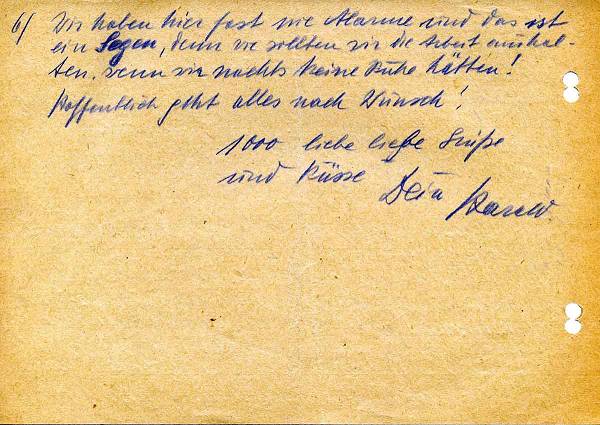 6/ Wir haben hier fast nie Alarme und das ist
ein Segen, denn wie sollten wir die Arbeit aushal-
ten, wenn wir nachts keine Ruhe hätten!
Hoffentlich geht alles nach Wunsch!
1000 liebe liebe Grüße
und Küsse Dein